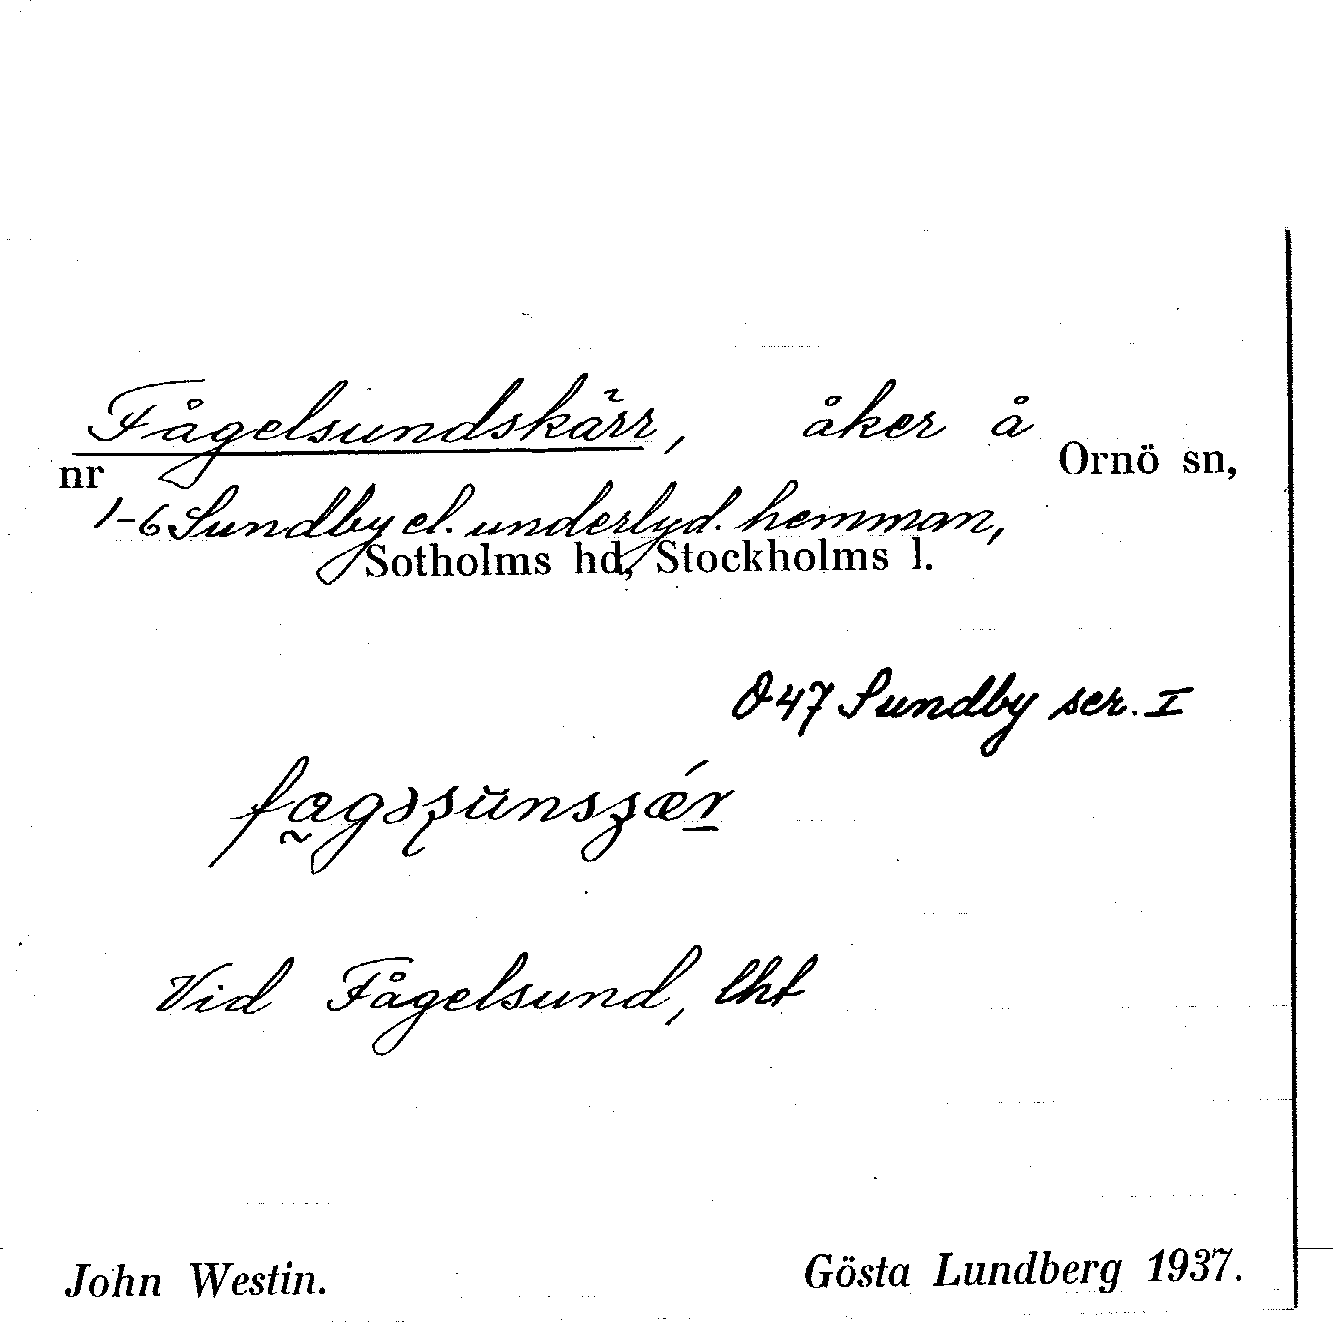 Fågelsundskärr, åker å Ornö sn,
nr 1-6 Sundby el. underlyd. hemman,
Sotholms hd, Stockholms l.
047 Sundby ser. I
Vid Fågelsund, lht
John Westin. Gösta Lundberg 1937.